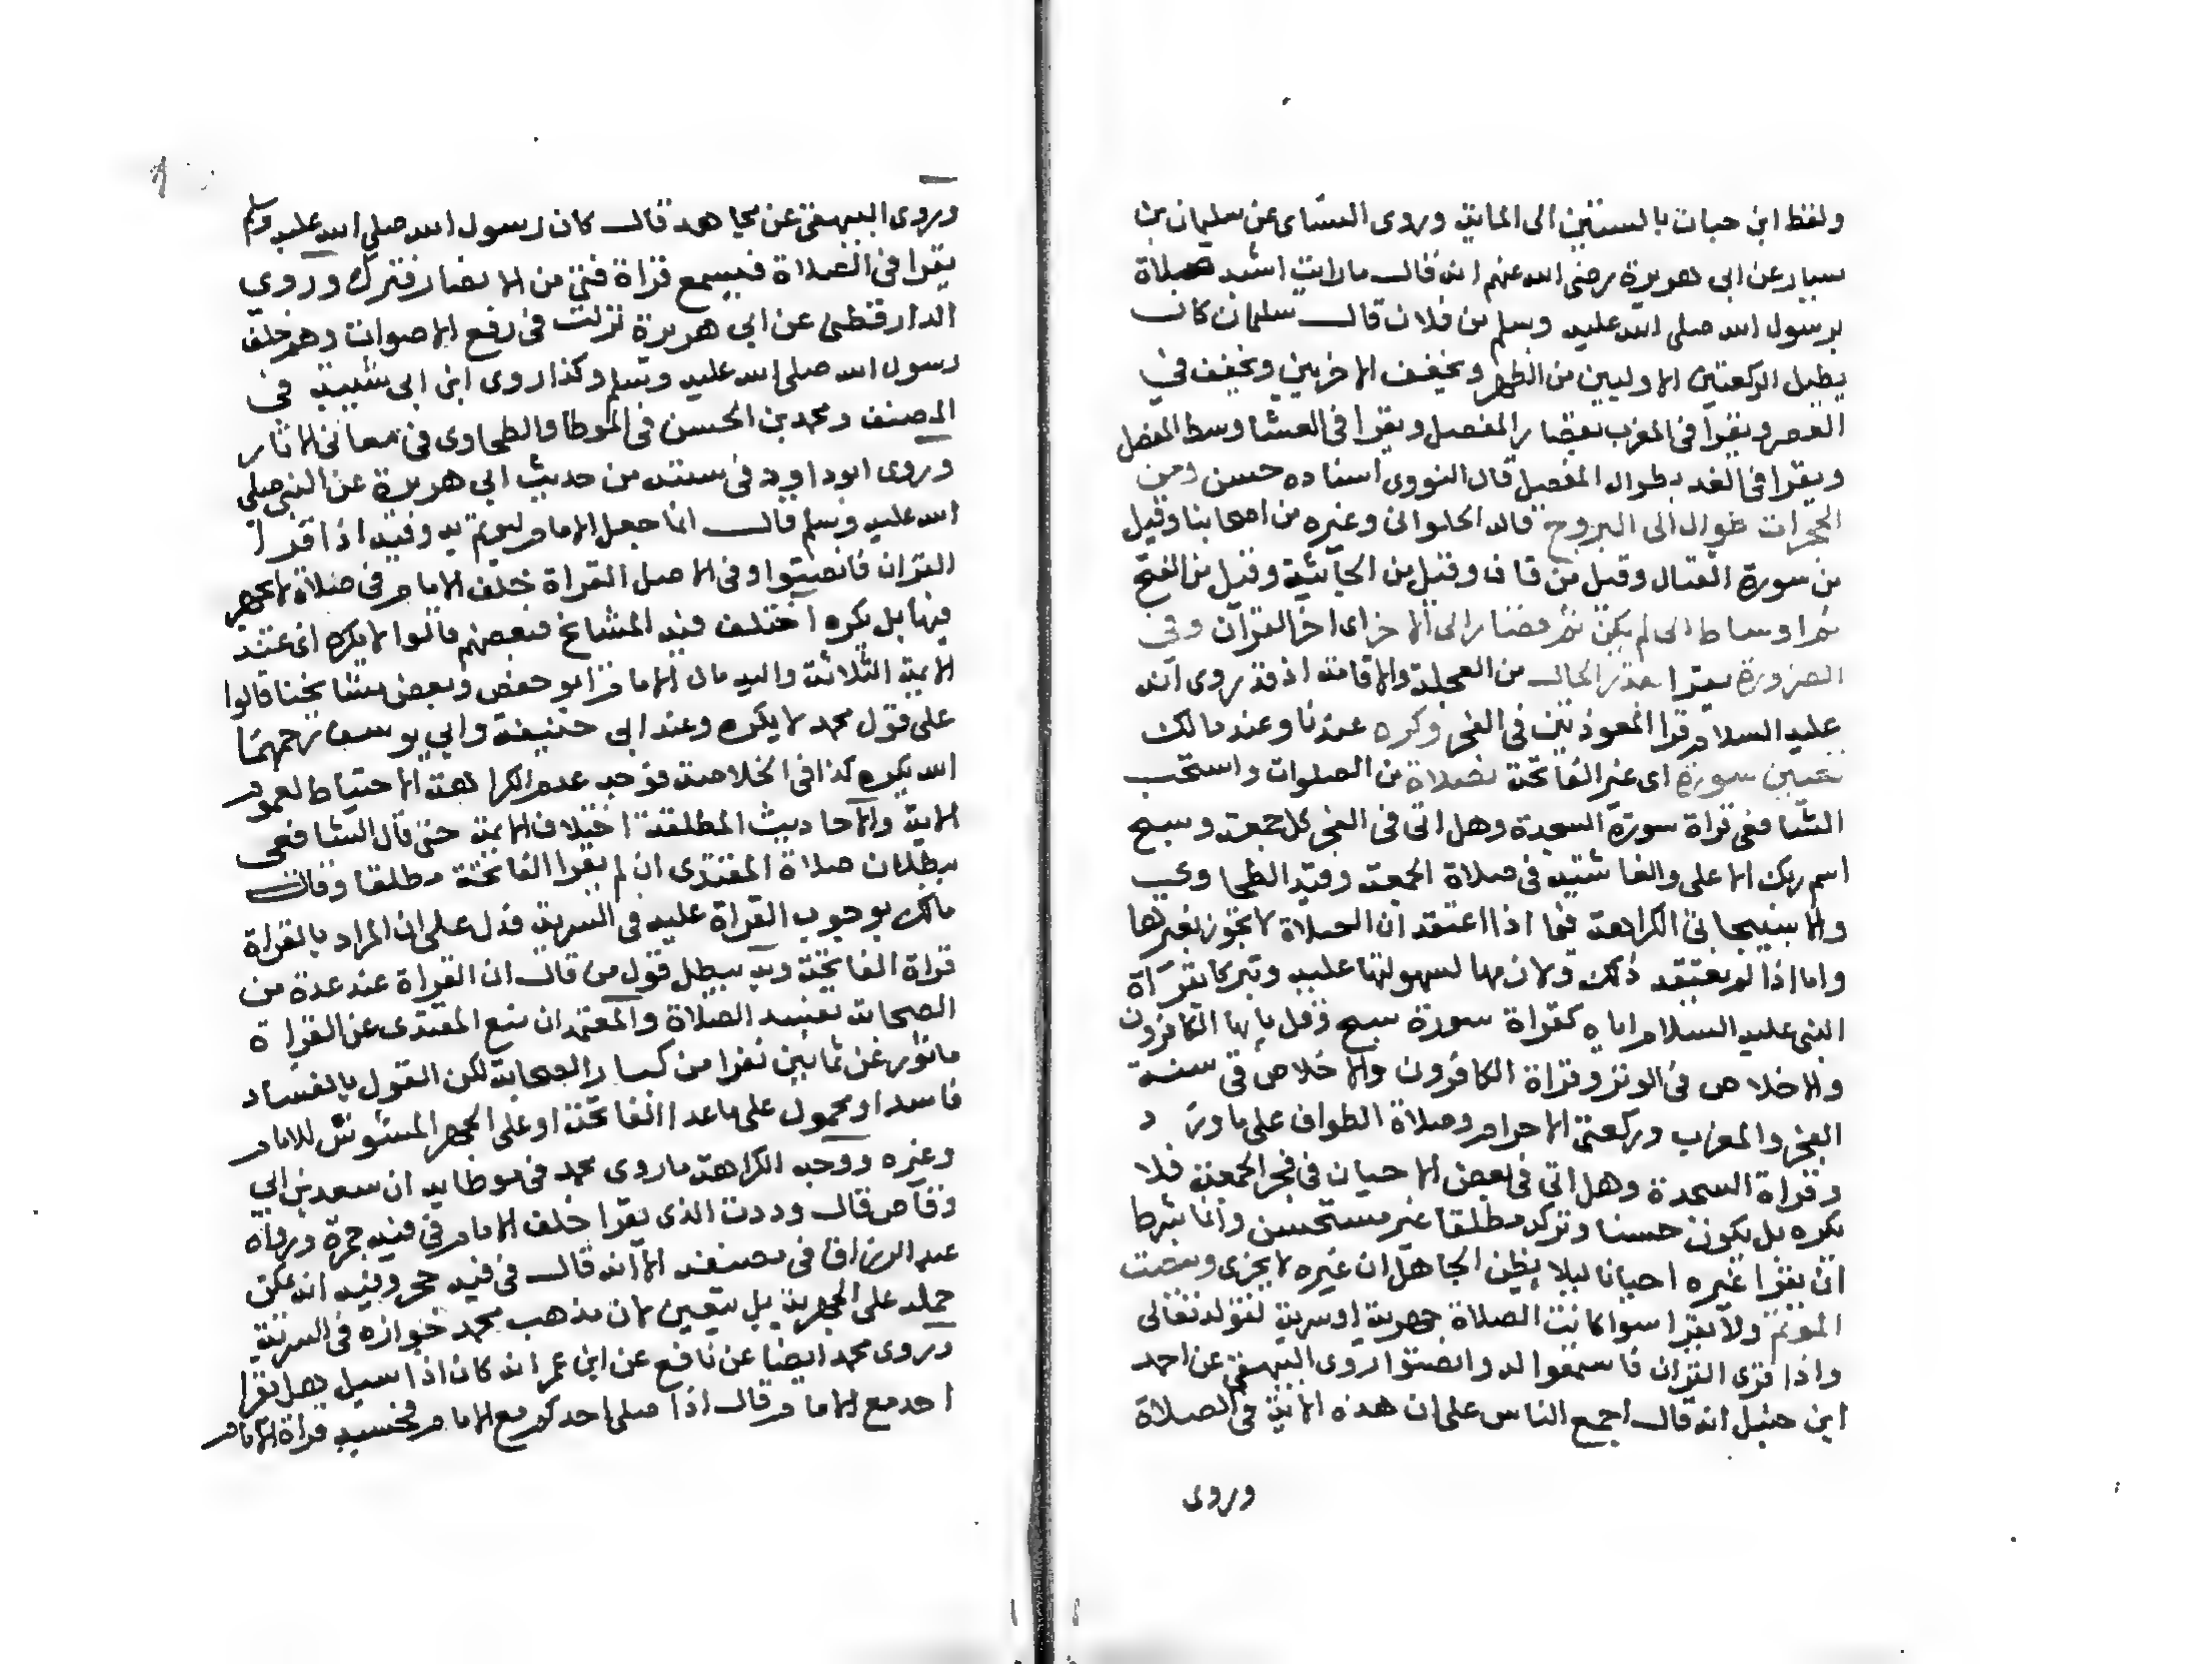 ولفظ ابن حبان بالستين الى الماية وروى النساى عن سليمان بن
يسار عن ابى هريرة رضى الله عنهم انه قال ما رايت اشبه صلاة
برسول الله صلى الله عليه وسلم من فلان قال سليمان كان
يطيل الركعتين الاوليين من الظهر ويخفف الاخريين ويخفف في
العصر ويقرا فى المغرب بقصار المفصل ويقرا فى العشا وسط المفصل
ويقرا فى الغد بطوال المفصل قال النووى اسناده حسن ومن
الحجرات طوال الى البروج قاله الحلوانى وغيره من اصحابنا وقيل
من سورة القتال وقيل من قاف وقيل من الجاثية وقيل من الفتح
ثم اوساط الى لم يكن ثم قصار الى الاخر اى اخر القران وفى
الضرورة يقرا بقدر الحال من العجلة والاقامة اذ قد روى انه
عليه السلام قرا المعوذتين فى الفجر وكره عندنا وعند مالك
تعيين سورة اى غير الفاتحة لصلاة من الصلوات واستحب
الشافعى قراة سورة السجدة وهل اتى فى الفجر كل جمعة وسبح
اسم ربك الاعلى والغاشية فى صلاة الجمعة وقيد الطحاوي
والاسبيجابى الكراهة فيما اذا اعتقد ان الصلاة لا تجوز بغيرها
واما اذا لم يعتقد ذلك ولازمها لسهولتها عليه وتبركا بقراة
النبى عليه السلام اياه كقراة سورة سبح وقل يايها الكافرون
والاخلاص فى الوتر وقراة الكافرون والاخلاص فى سنة
الفجر والمغرب وركعتى الاحرام وصلاة الطواف على ما ورد
وقراة السجدة وهل اتى فى بعض الاحيان فى فجر الجمعة فلا
يكره بل يكون حسنا وتركه مطلقا غير مستحسن وانما شرط
ان يقرا غيره احيانا ليلا يظن الجاهل ان غيره لا يجزى وينصت
المؤتم ولا يقرا سوا كانت الصلاة جهرية او سرية لقوله تعالى
واذا قرى القران فاستمعوا له وانصتوا روى البيهقى عن احمد
ابن حنبل انه قال اجمع الناس على ان هذه الاية فى الصلاة
وروى
وروى البيهقى عن مجاهد قال كان رسول الله صلى الله عليه وسلم
يقرا فى الصلاة فيسمع قراة فتى من الانصار فنزلت وروي
الدارقطنى عن ابى هريرة نزلت فى رفع الاصوات وهم خلف
رسول الله صلى الله عليه وسلم وكذا روى ابن ابى شيبة فى
المصنف ومحمد بن الحسن فى الموطا والطحاوى فى معانى الاثار
وروى ابو داود فى سننه من حديث ابى هريرة عن النبى صلى
الله عليه وسلم قال انما جعل الامام ليوتم به وفيه اذا قرا
القران فانصتوا وفى الاصل القراة خلف الامام فى صلاة لا يجهر
فيها بل يكره اختلف فيه المشايخ فبعضهم قالوا لا يكره اى عند
الايمة الثلاثة واليه مال الامام ابو حفص وبعض مشايخنا قالوا
على قول محمد لا يكره وعند ابى حنيفة وابى يوسف رحمهما
الله يكره كذا فى الخلاصة فوجه عدم الكراهة الاحتياط لعموم
الاية والاحاديث المطلقة اختلاف الايمة حتى قال الشافعى
ببطلان صلاة المقتدى ان لم يقرا الفاتحة مطلقا وقال
مالك بوجوب القراة عليه فى السرية فدل على ان المراد بالقراة
قراة الفاتحة وبه يبطل قول من قال ان القراة عند عدة من
الصحابة تفسد الصلاة والمعتمد ان منع المقتدى عن القراة
ماثور عن ثمانين نفرا من كبار الصحابة لكن القول بالفساد
فاسد او محمول على ما عدا الفاتحة او على الجهر المشوش للامام
وغيره ووجه الكراهة ما روى محمد فى موطايه ان سعد بن ابي
وقاص قال وددت الذى يقرا خلف الامام فى فيه جمرة ورواه
عبد الرزاق فى مصنفه الا انه قال فى فيه حجر وفيه انه يمكن
حمله على الجهرية بل يتعين لان مذهب محمد جوازه فى السرية
وروى محمد ايضا عن نافع عن ابن عمر انه كان اذا سيل هل يقرا
احد مع الامام قال اذا صلى احدكم مع الامام فحسبه قراة الامام